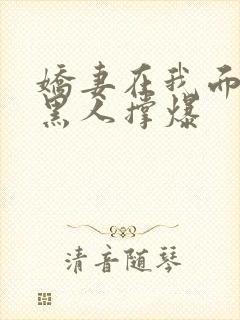 娇妻在我而
黑人撑爆
清音随琴